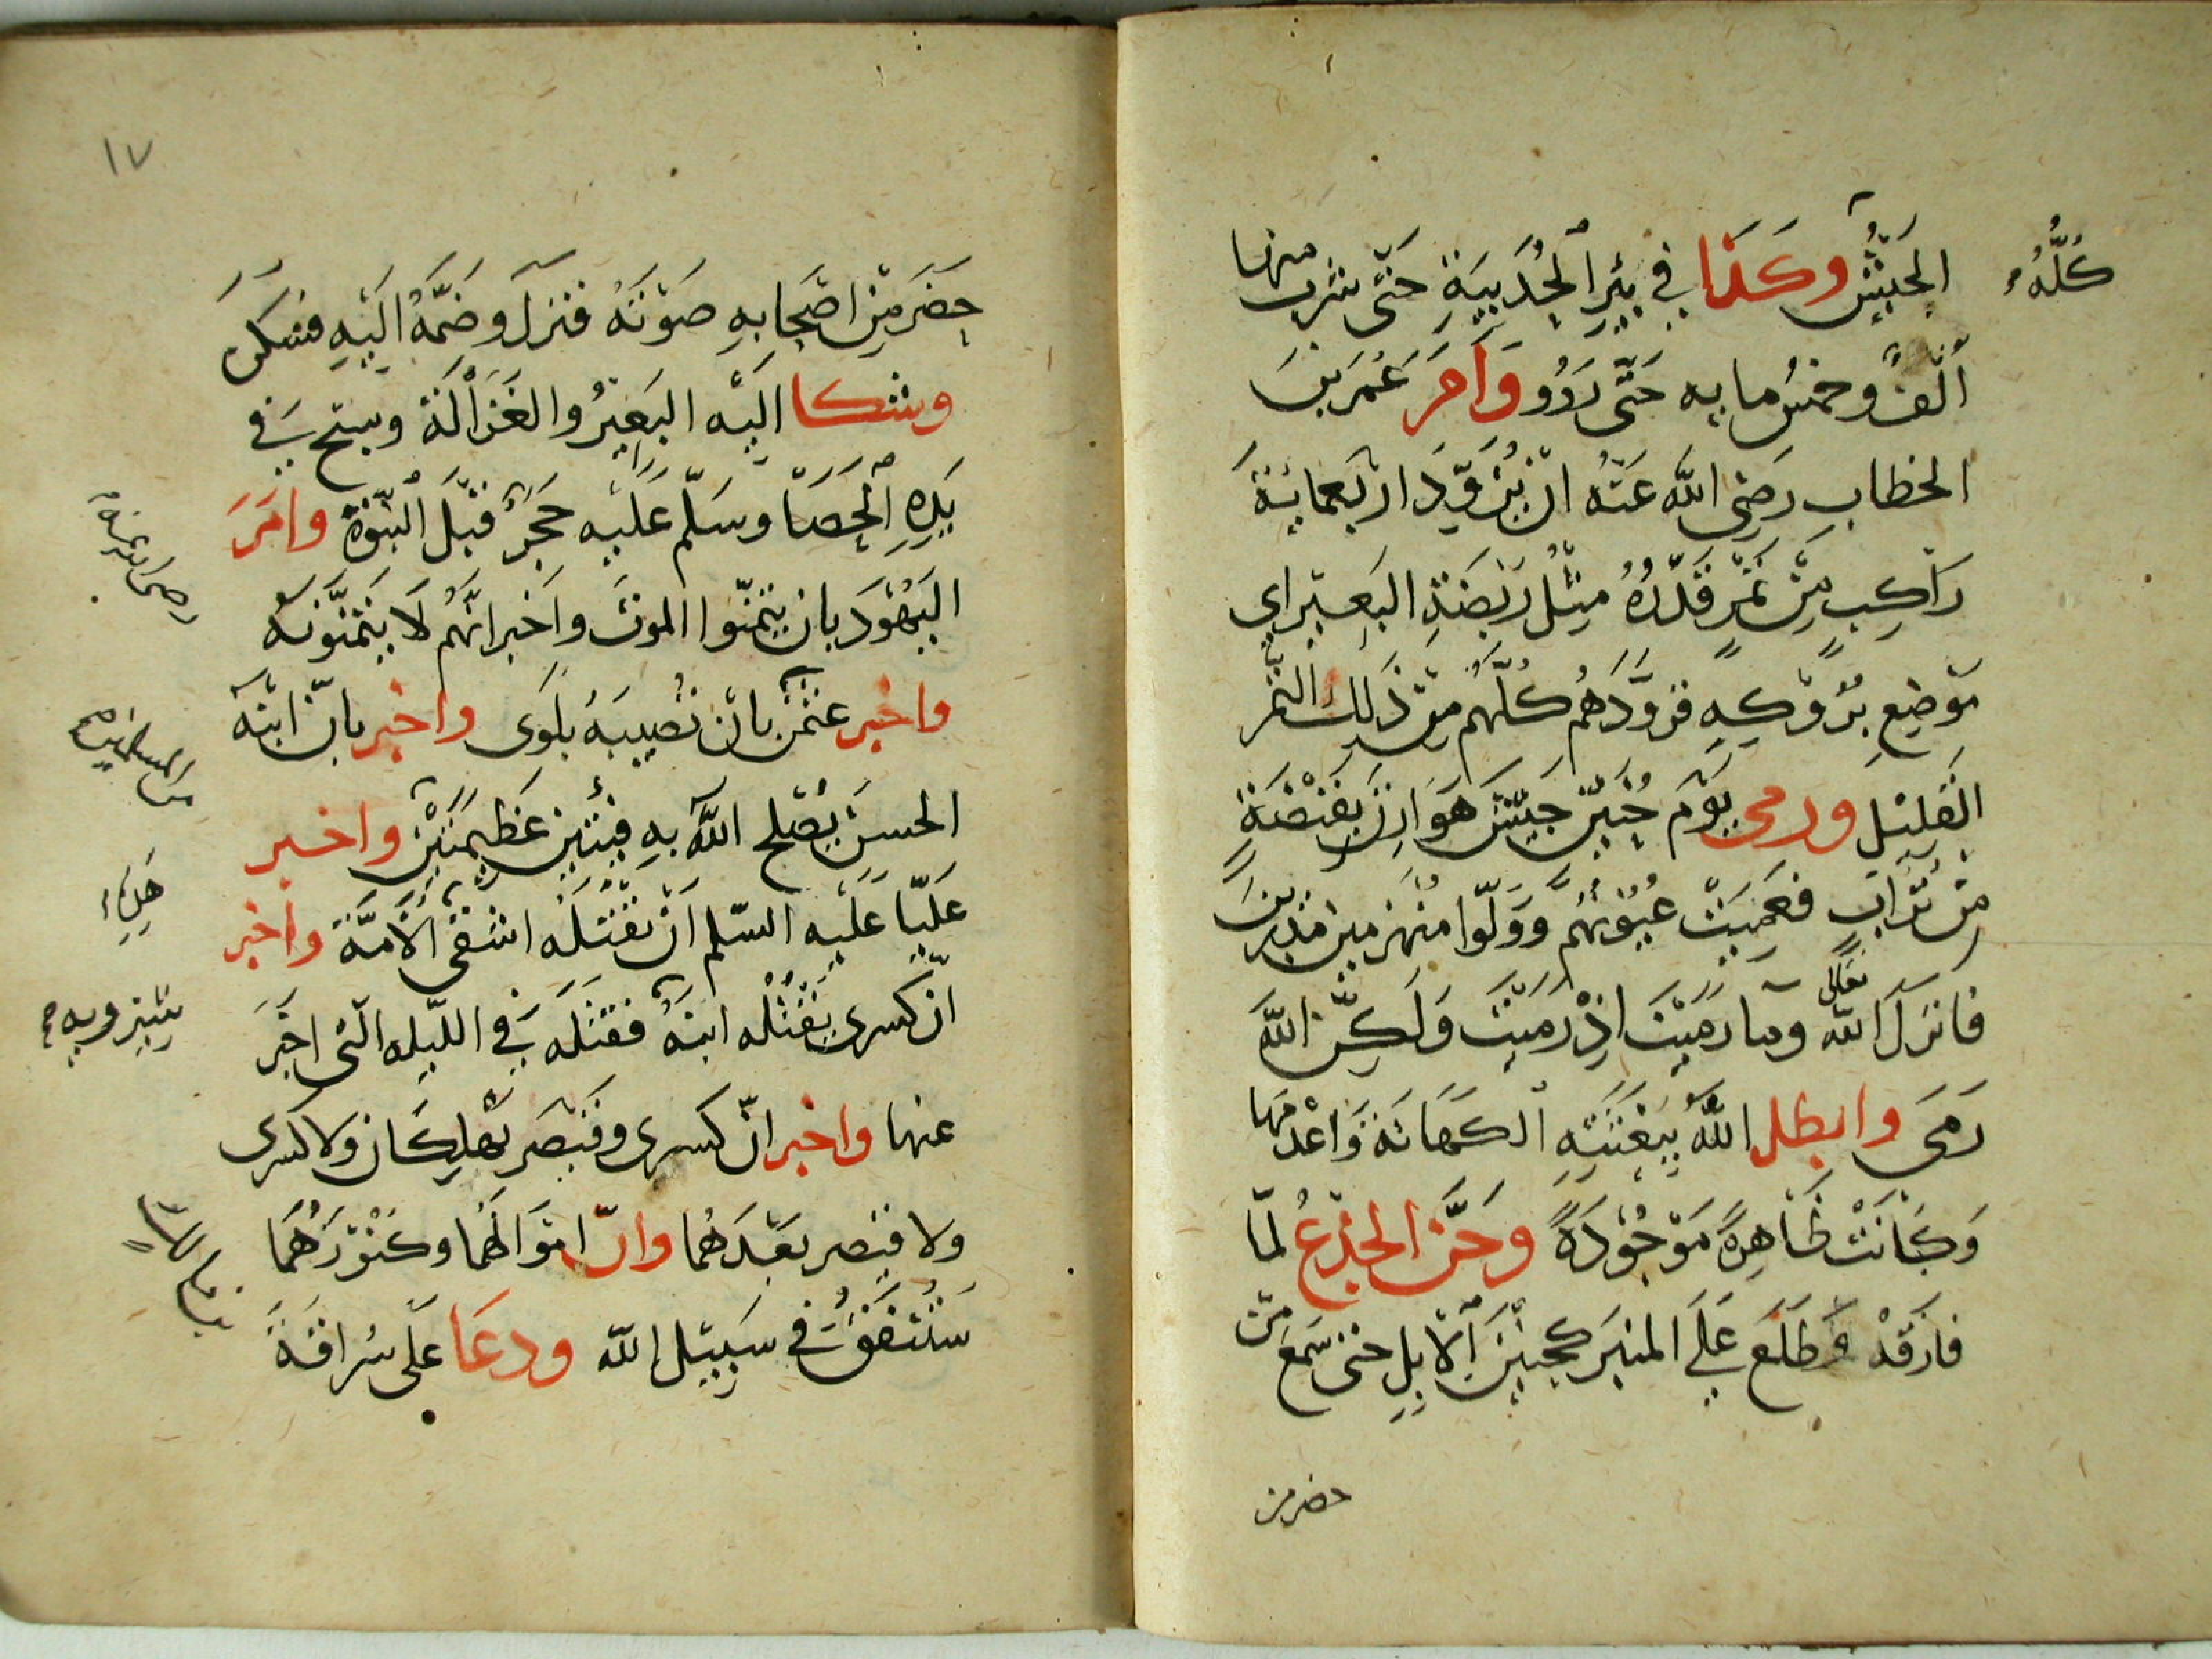 كُلُّهُ
الجَيْشُ وَكَذَا فِي بِيْرِ الْحُدَيْبِيَةِ حَتَّى شرب منها
اَلْفٌ وخمسُ مايه حَتَّى رَوُو وَاَمَرَ عُمَرَ بنَ
الخطاب رَضِىَ اللّه عَنْهُ انْ يُزَوِّدَ اربَعمايَةَ
رَاكِبٍ مِّنْ تَمْرٍ قَدْرُهُ مِثْلُ رَبْضَةِ البَعيْر اى
مَوْضِعِ بُرُوْكِهِ فزوَّدَهُم كُلَّهم مِنْ ذَلِكَ التمر
الْقَلِيْلِ وَرمى يَوْمَ حُنَيْنٍ جَيْشَ هَوَازِنَ بِقَبْضَةٍ
مِنْ تُرَابٍ فعَمِيَتْ عُيُوْنُهُم وَوَلَّوا مُنْهَزِمِيْن مُدْبِرِينَ
فانزلَ اللّه تعالى وما رَمَيْتَ اِذْ رَمَيْتَ وَلَكِنَّ اللّهَ
رَمَى وابطل اللّهُ بِبَعْثَتِهِ الكَهَانَةَ وَاعْدمَهَا
وَكَانَتْ ظَاهِرَةً مَوْجُوْدَةً وَحَنَّ الجِذْعُ لمّا
فارَقَهُ وَطَلَعَ عَلَى المنبَر كحَنِيْنِ الْاِبِلِ حتى سَمعَ مَنْ
حضر من
١٧
حضَرَ مِنْ اصْحَابهِ صَوْتَهُ فنزلَ وضَمَّهُ الَيْهِ فسَكَنَ
وشكا اليْه البَعيْرُ والغَزَالَة وسبّح فِي
يَدِهِ الْحَصَا وسَلّم عَلَيْه حَجَرٌ قَبْلَ النّبُوّةِ وامَرَ
اليَهُوْدَ بان يتمَنّوا الموتَ واَخبر انّهُم لَا يَتَمَنَّوْنَهُ
واخبر عثمٰن بانْ تُصِيبَهُ بلوَى واخبر بانّ ابنَهُ
رضى الله عنه
الحسنَ يُصْلِح اللّهُ بهِ فِئَتَيْن عَظيمَتَيْنِ واخبر
من المسلمين
عَليّا عَليْه السّلم اَنْ يَقْتُلَهُ اشقَى الْاُمَّة واَخبر
انّ كسرى يَقْتُلُه ابنهُ فقتَلَه فِي الليله الّتى اخبَرَ
شيرويه
عنها واخبر انّ كسرى وقَيْصَر يَهلِكَان ولا كسرى
ولا قيصر بعْدَهُما وانّ امْوَالَهُما وكُنُوْزَهُمَا
سَتُنْفَقُ فِي سَبيْل اللّه ودعَا عَلَى سُراقَةَ